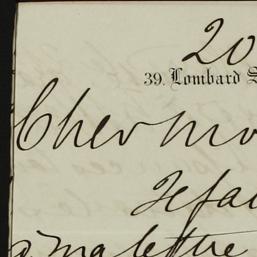 20
39. Lombard S
Cher mo
Je fai
a ma lettre